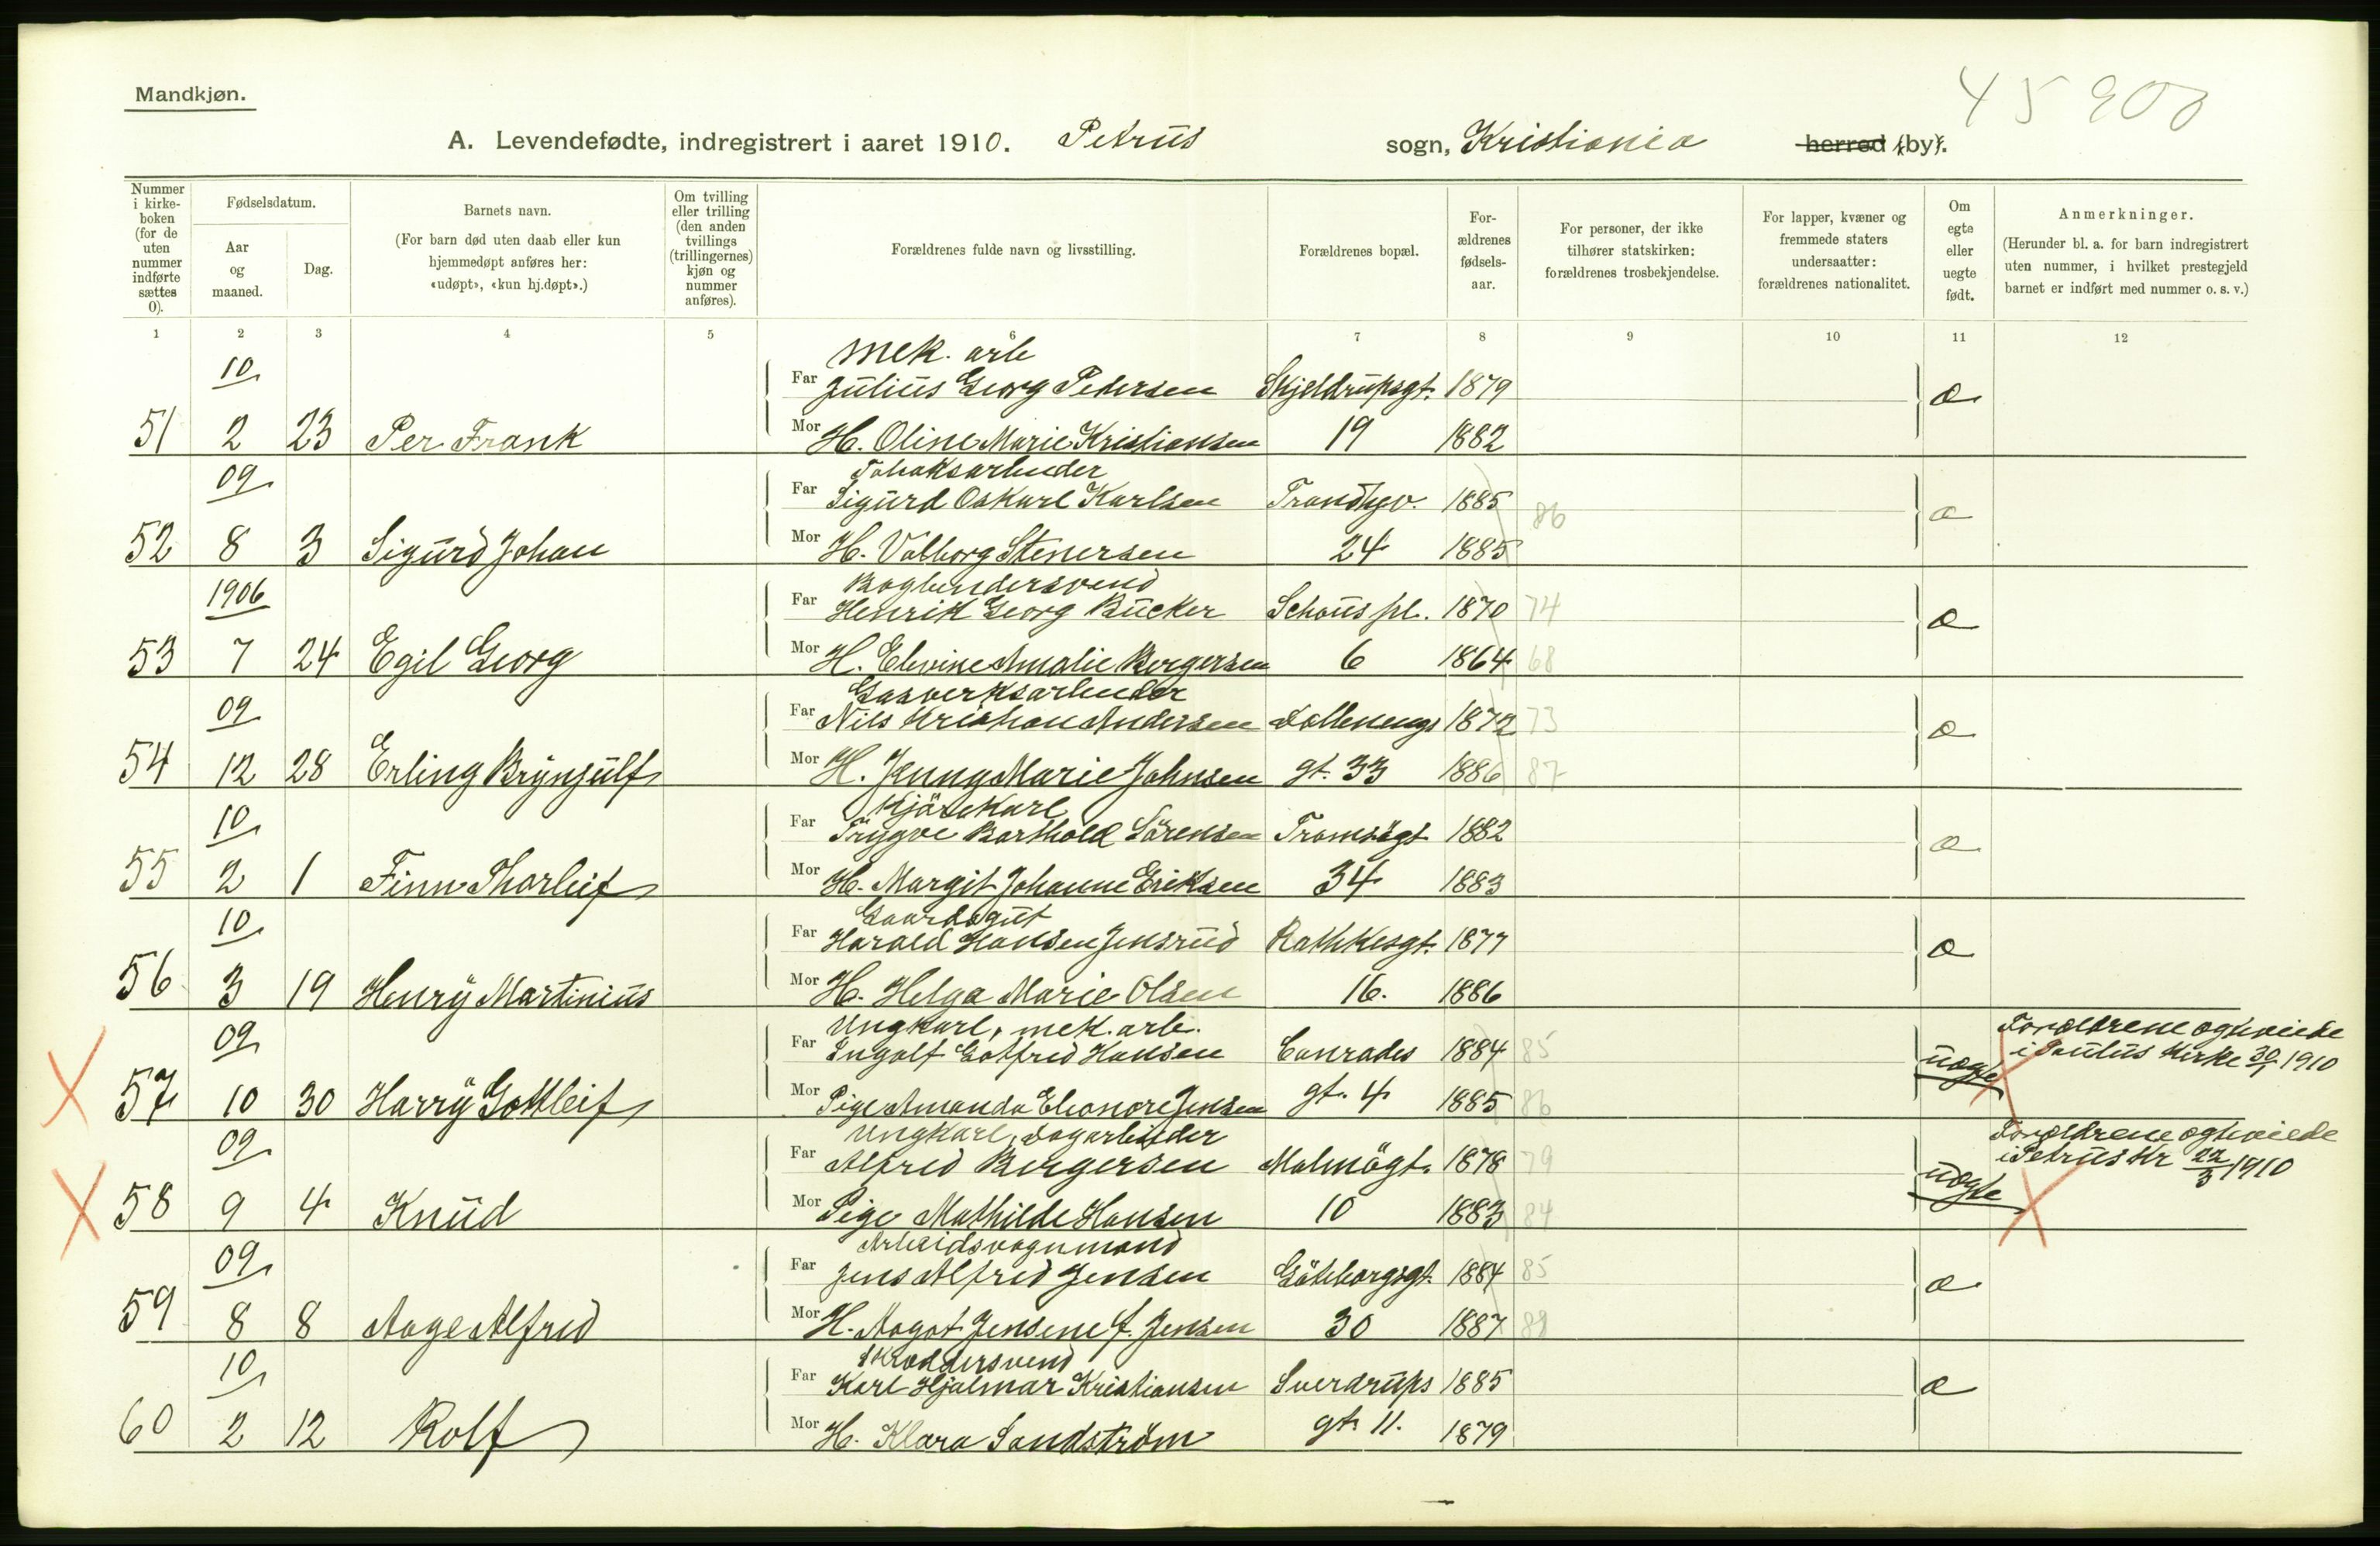 Mandkjøn.
45 900
A. Levendefødte, indregistrert i aaret 1910. Petrus sogn, Kristiania herred (by).
Nummer i kirkeboken (for de uten nummer indførte sættes 0).
Fødselsdatum.
Aar og maaned.
Dag.
Barnets navn.
(For barn død uten daab eller kun hjemmedøpt anføres her: «udøpt», «kun hj.døpt».)
Om tvilling eller trilling (den anden tvillings (trillingernes) kjøn og nummer anføres).
Forældrenes fulde navn og livsstilling.
Forældrenes bopæl.
Forældrenes fødselsaar.
For personer, der ikke tilhører statskirken: forældrenes trosbekjendelse.
For lapper, kvæner og fremmede staters undersaatter: forældrenes nationalitet.
Om egte eller uegte født.
Anmerkninger.
(Herunder bl. a. for barn indregistrert uten nummer, i hvilket prestegjeld barnet er indført med nummer o. s. v.)
1 2 3 4 5 6 7 8 9 10 11 12
Mek. arb
10 Far Julius Georg Petersen Skjeldrupsgt. 1879 æ
51 2 23 Per Frank Mor H. Oline Marie Kristiansen 19 1882
Tobaksarbeider
09 Far Sigurd Oskarl Karlsen Trondhjv. 1885 86 æ
52 8 3 Sigurd Johan Mor H. Valborg Stenersen 24 1885
Bogbindersvend
1906 Far Henrik Georg Bücker Schous pl. 1870 74 æ
53 7 24 Egil Georg Mor H. Elevine Amalie Borgersen 6 1864 68
Gasverksarbeider
09 Far Nils Kristian Andersen Sollenengs 1872 73 æ
54 12 28 Erling Brynjulf Mor H. Jenny Marie Johnsen gt. 33 1886 87
Kjörekarl
10 Far Trygve Barthold Sörensen Tromsögt 1882 æ
55 2 1 Finn Thorleif Mor H. Margit Johanne Eriksen 34 1883
Gaardsgut
10 Far Harald Hansen Jensrud Rathkesgt. 1877 æ
56 3 19 Henry Martinius Mor H. Helga Marie Olsen 16. 1886
Ungkarl, mek. arb. Forældrene egteviede
09 Far Ingolf Gotfred Hansen Conrades 1884 85 uægte i Paulus Kirke 30/1 1910
57 10 30 Harry Gottleif Mor Pige Amanda Eleonore Jensen gt. 4 1885 86
Ungkarl, Dagarbeider Forældrene egteviede
09 Far Alfred Bergersen Malmögt. 1878 79 uægte i Petrus Kr 22/3 1910
58 9 4 Knud Mor Pige Mathilde Hansen 10 1883 84
Arbeidsvognmand
09 Far Jens Alfred Jensen Göteborgsgt. 1884 85 æ
59 8 8 Aage Alfred Mor H. Aagot Jensine f. Jensen 30 1887 88
Skreddersvend
10 Far Karl Hjalmar Kristiansen Sverdrups 1885 æ
60 2 12 Rolf Mor H. Klara Sandström gt. 11. 1879